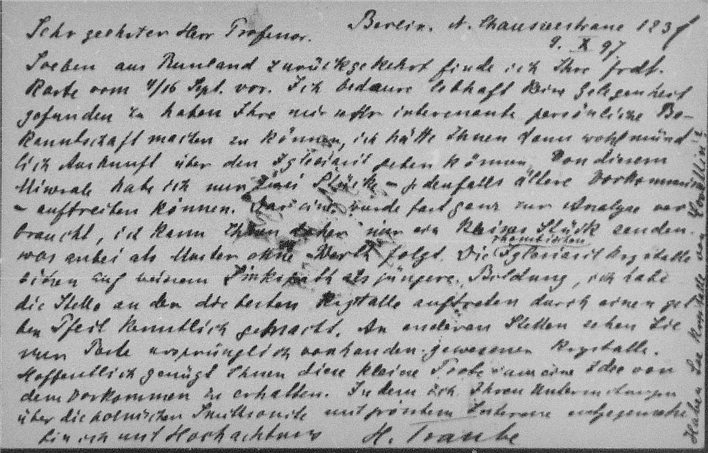 Berlin. N. Chausseestrasse 123
9. X 97
Sehr geehrter Herr Professor.
Soeben aus Russland zurückgekehrt finde ich Ihre frdl.
Karte vom 4/16 Spt. vor. Ich bedaure lebhaft keine Gelegenheit
gefunden zu haben Ihre mir sehr interessante persönliche Be-
kanntschaft machen zu können, ich hätte Ihnen dann wohl münd
lich Auskunft über den Iglesiasit geben können. Von diesem
Minerale habe ich nur zwei Stücke - jedenfalls ältere Vorkommnisse
- auftreiben können. Das eine wurde fast ganz zur Analyse ver
braucht, ich kann Ihnen daher nur ein kleines Stück senden.
was anbei als Muster ohne Werth folgt. Die rhombischen Iglesiasit Krystalle
sitzen auf Zinkspath als jüngere Bildung, ich habe
die Stelle an der die besten Krystalle auftreten durch einen
Pfeil kenntlich gemacht. An anderen Stellen sehen Sie
nur Reste ursprünglich vorhanden gewesener Krystalle.
Hoffentlich genügt Ihnen diese kleine Probe um eine Idee von
dem Vorkommen zu erhalten. Indem ich Ihren Untersuchungen
über die polnischen Smithsonite mit grösstem Interesse entgegensehe
bin ich mit Hochachtung H. Traube
Haben Sie Krystalle von